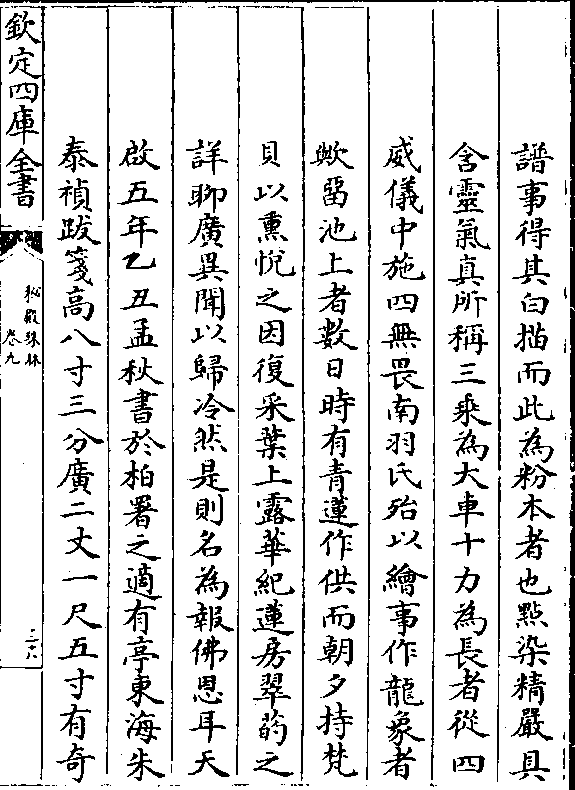 譜事得其白描而此為粉本者也㸃染精嚴具
含靈氣真所稱三乘為大車十力為長者從四
威儀中施四無畏南羽氏殆以繪事作龍象者
歟畱池上者數日時有青蓮作供而朝夕持梵
貝以熏悅之因復采葉上露華紀蓮房翠菂之
詳聊廣異聞以歸冷然是則名為報佛恩耳天
啟五年乙丑孟秋書於柏署之適有亭東海朱
泰禎跋箋高八寸三分廣二丈一尺五寸有奇
欽定四庫全書
秘殿珠林
卷九